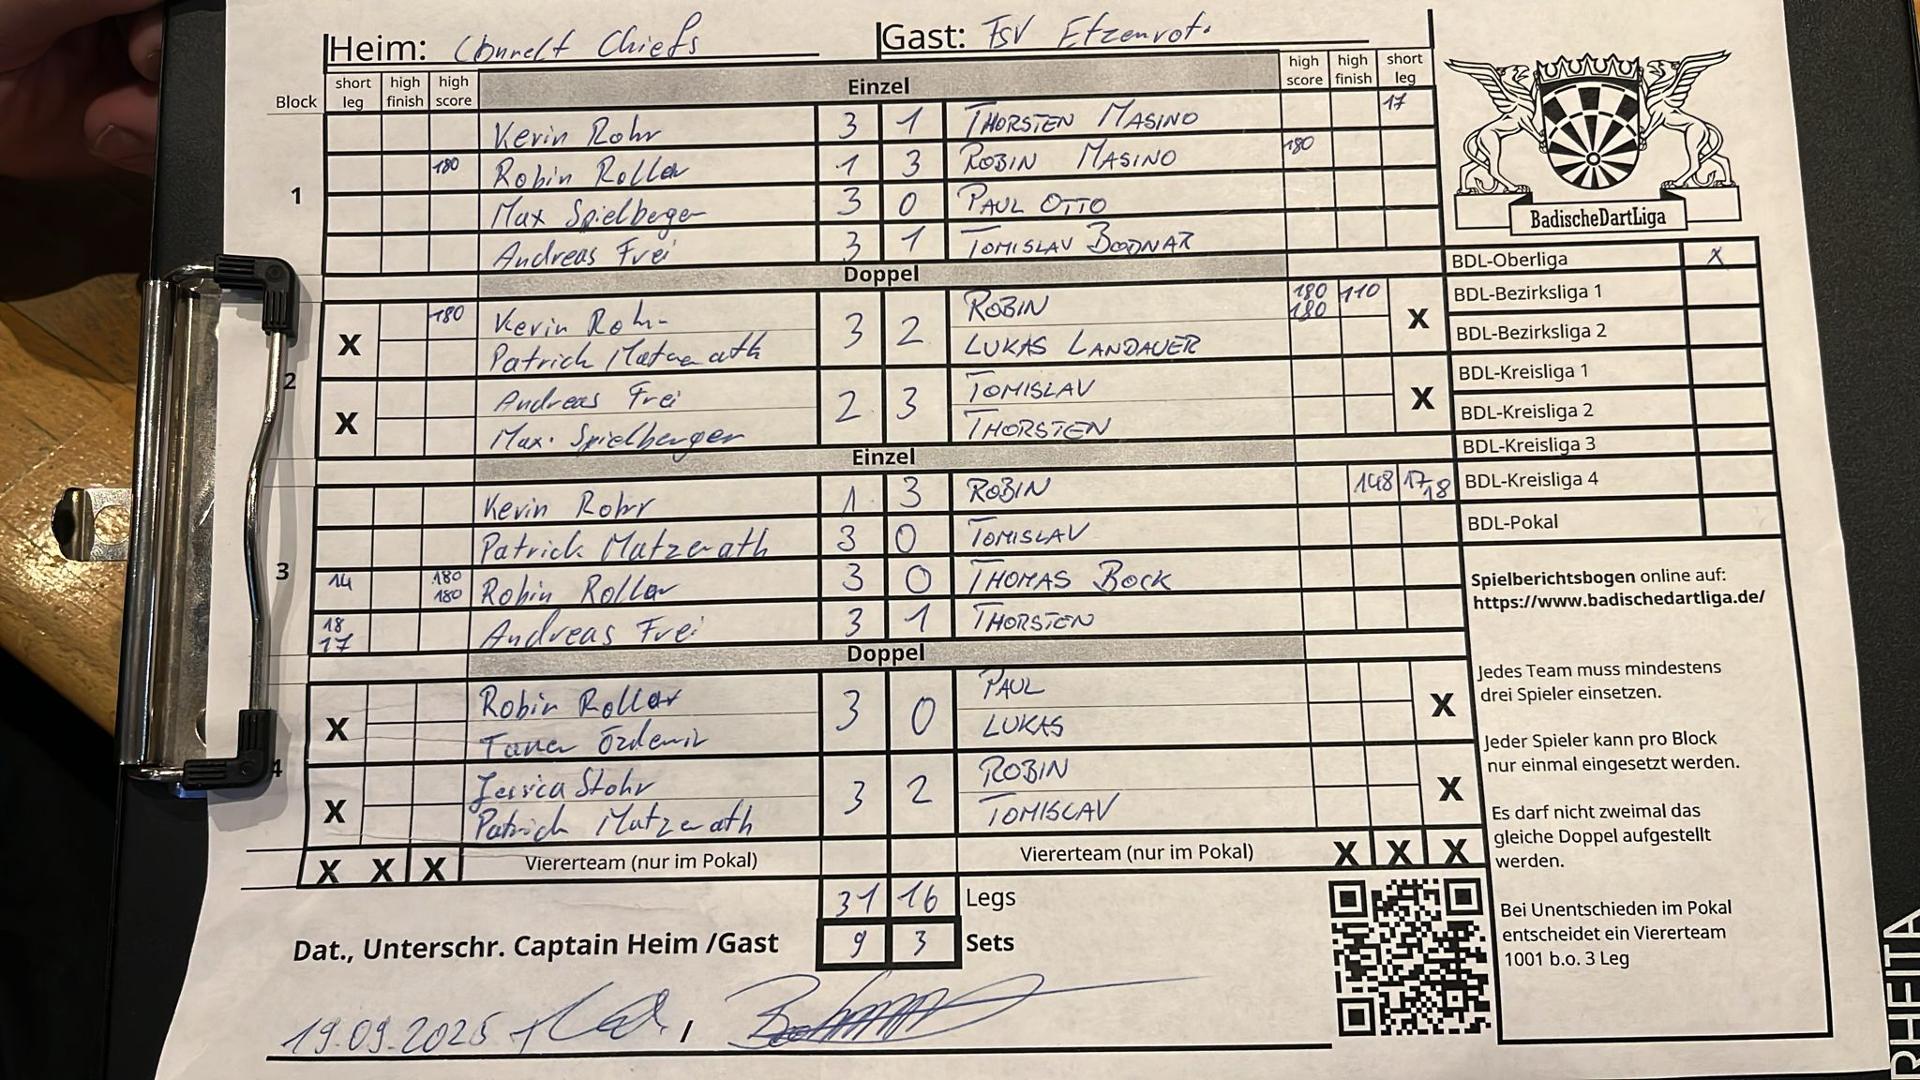 Heim: Connelt Chiefs Gast: TSV Etzenrot.
Block short leg high finish high score Einzel high score high finish short leg
1
Kevin Rohr 3 1 THORSTEN MASINO 17
180 Robin Roller 1 3 ROBIN MASINO 180
Max Spielberger 3 0 PAUL OTTO
Andreas Frei 3 1 TOMISLAV BODNAR
Doppel
2
X 180 Kevin Rohr 3 2 ROBIN 180 180 110 X
Patrick Matzerath LUKAS LANDAUER
X Andreas Frei 2 3 TOMISLAV X
Max. Spielberger THORSTEN
Einzel
3
Kevin Rohr 1 3 ROBIN 148 17 18
Patrick Matzerath 3 0 TOMISLAV
14 180 180 Robin Roller 3 0 THOMAS BOCK
18 17 Andreas Frei 3 1 THORSTEN
Doppel
4
X Robin Roller 3 0 PAUL X
Taner Özdemir LUKAS
X Jessica Stohr 3 2 ROBIN X
Patrick Matzerath TOMISLAV
X X X Viererteam (nur im Pokal) Viererteam (nur im Pokal) X X X
31 16 Legs
Dat., Unterschr. Captain Heim /Gast 9 3 Sets
19.09.2025 /
BadischeDartLiga
BDL-Oberliga X
BDL-Bezirksliga 1
BDL-Bezirksliga 2
BDL-Kreisliga 1
BDL-Kreisliga 2
BDL-Kreisliga 3
BDL-Kreisliga 4
BDL-Pokal
Spielberichtsbogen online auf:
https://www.badischedartliga.de/
Jedes Team muss mindestens
drei Spieler einsetzen.
Jeder Spieler kann pro Block
nur einmal eingesetzt werden.
Es darf nicht zweimal das
gleiche Doppel aufgestellt
werden.
Bei Unentschieden im Pokal
entscheidet ein Viererteam
1001 b.o. 3 Leg